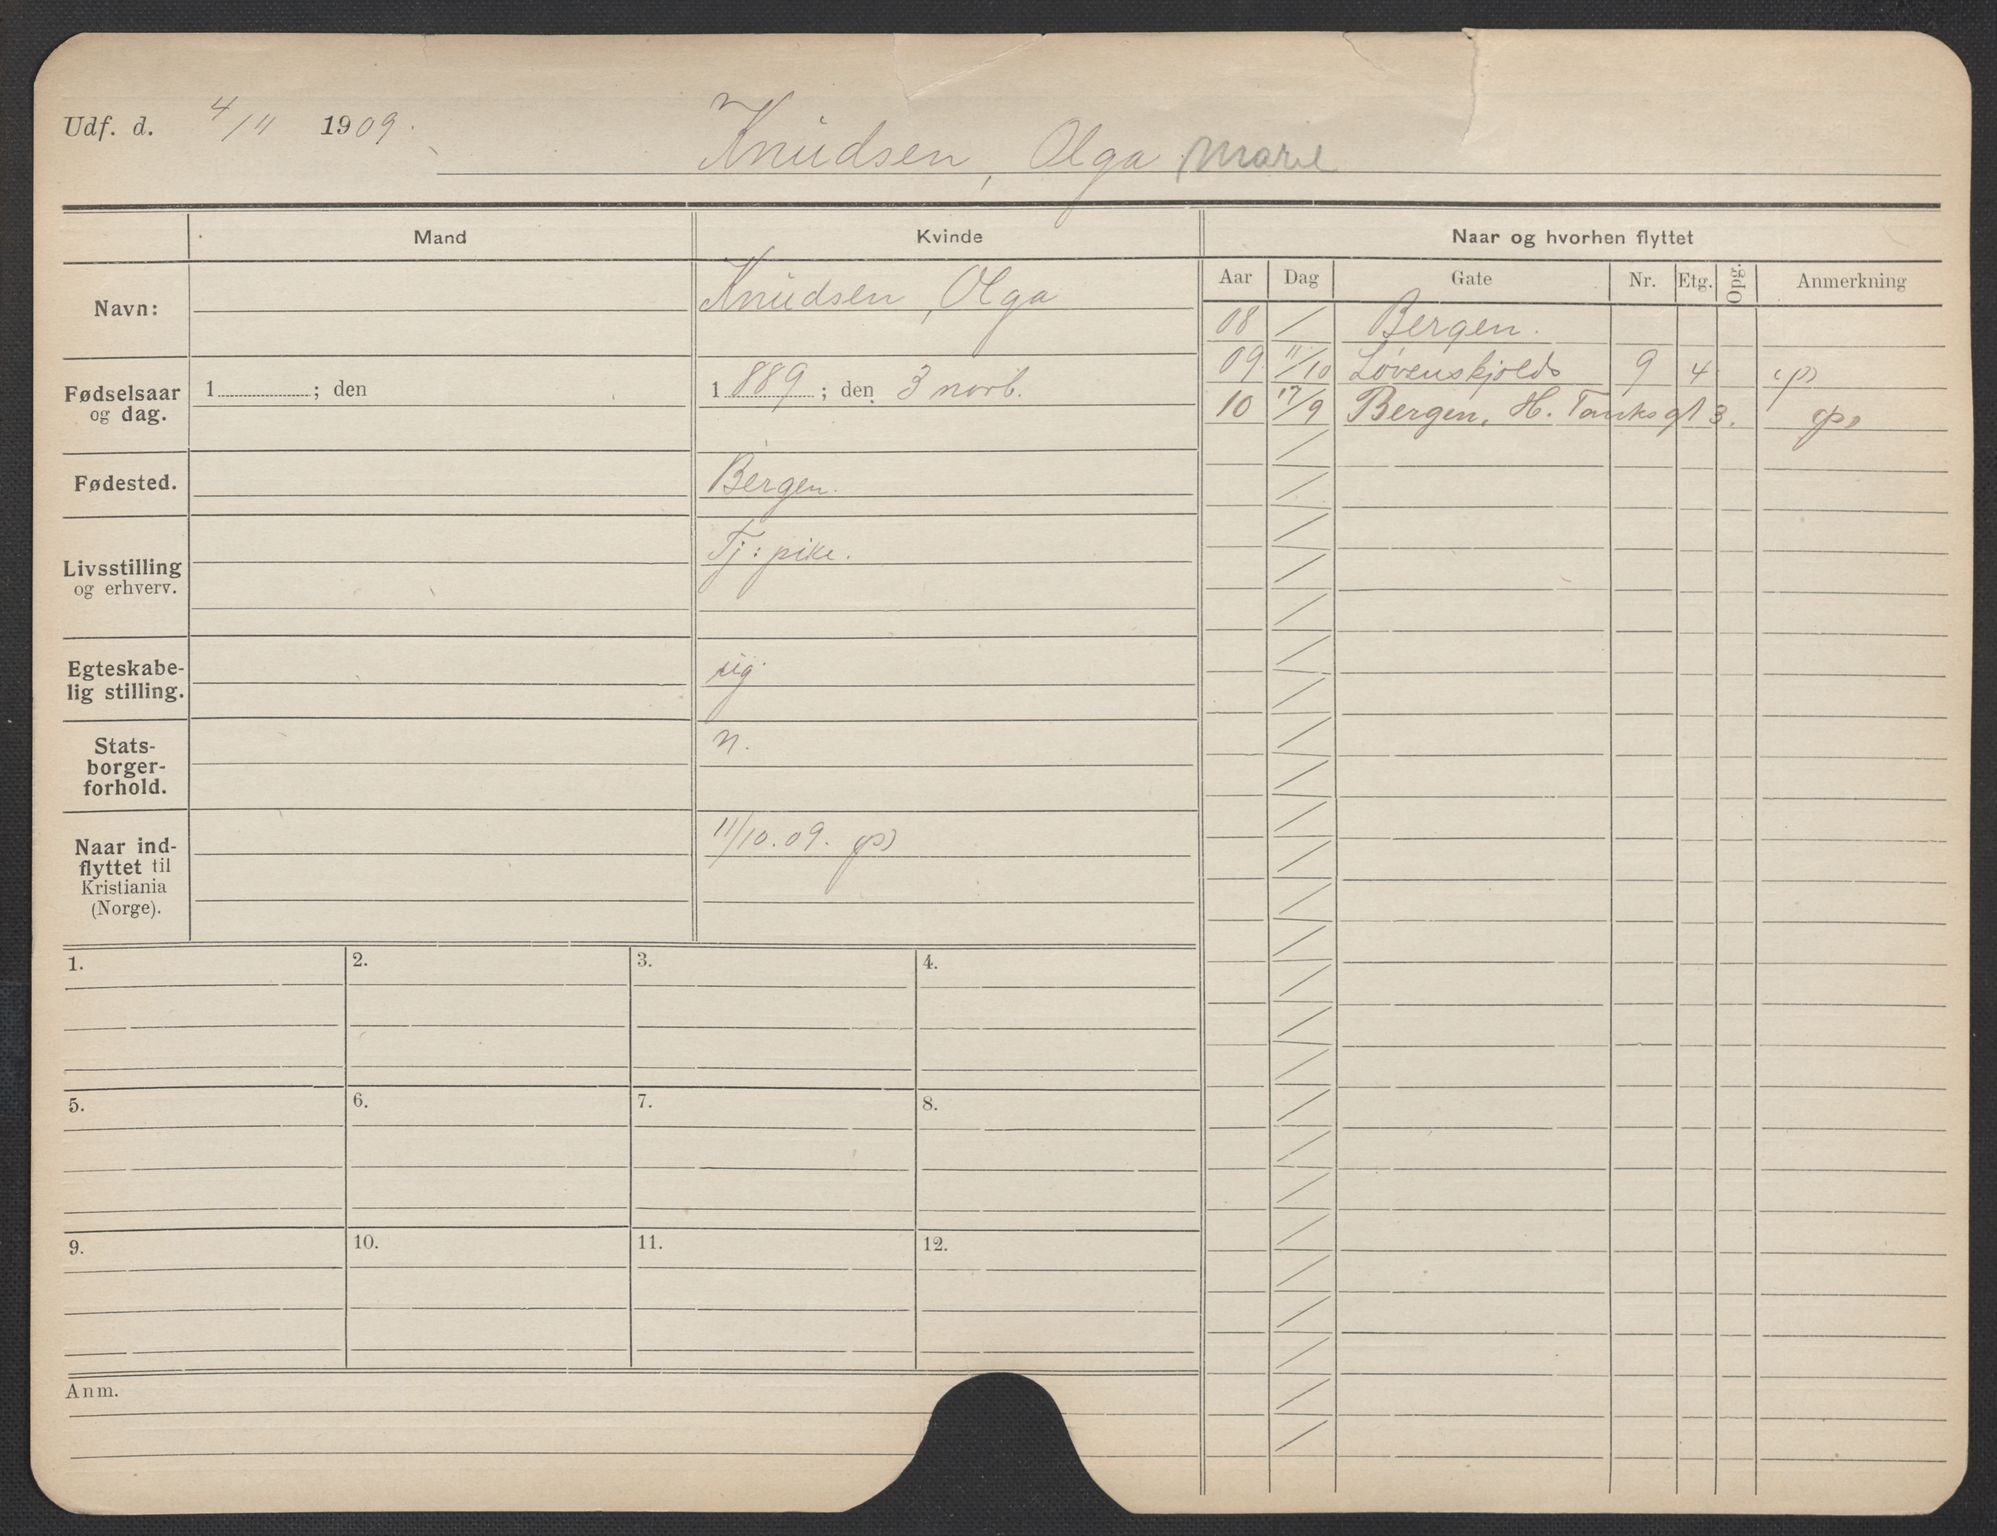 Udf. d. 4/11 1909.
Knudsen, Olga Marie
Mand
Kvinde
Naar og hvorhen flyttet
Aar Dag Gate Nr. Etg. Opg. Anmerkning
Navn:
Knudsen, Olga
08 / Bergen.
09 11/10 Løvenskjolds 9 4
10 17/9 Bergen, H. Tanksgt 3.
Fødselsaar og dag.
1 ; den
1 889 ; den 3 novb.
Fødested.
Bergen.
Livsstilling og erhverv.
Tj: pike.
Egteskabe-
lig stilling.
ug.
Stats-
borger-
forhold.
n.
Naar ind-
flyttet til
Kristiania
(Norge).
11/10.09.
1. 2. 3. 4.
5. 6. 7. 8.
9. 10. 11. 12.
Anm.